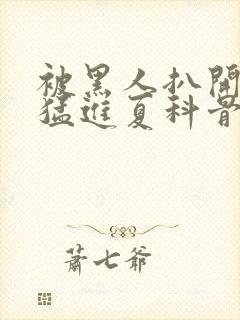 被黑人扒開
猛進夏科骨
蕭七爺